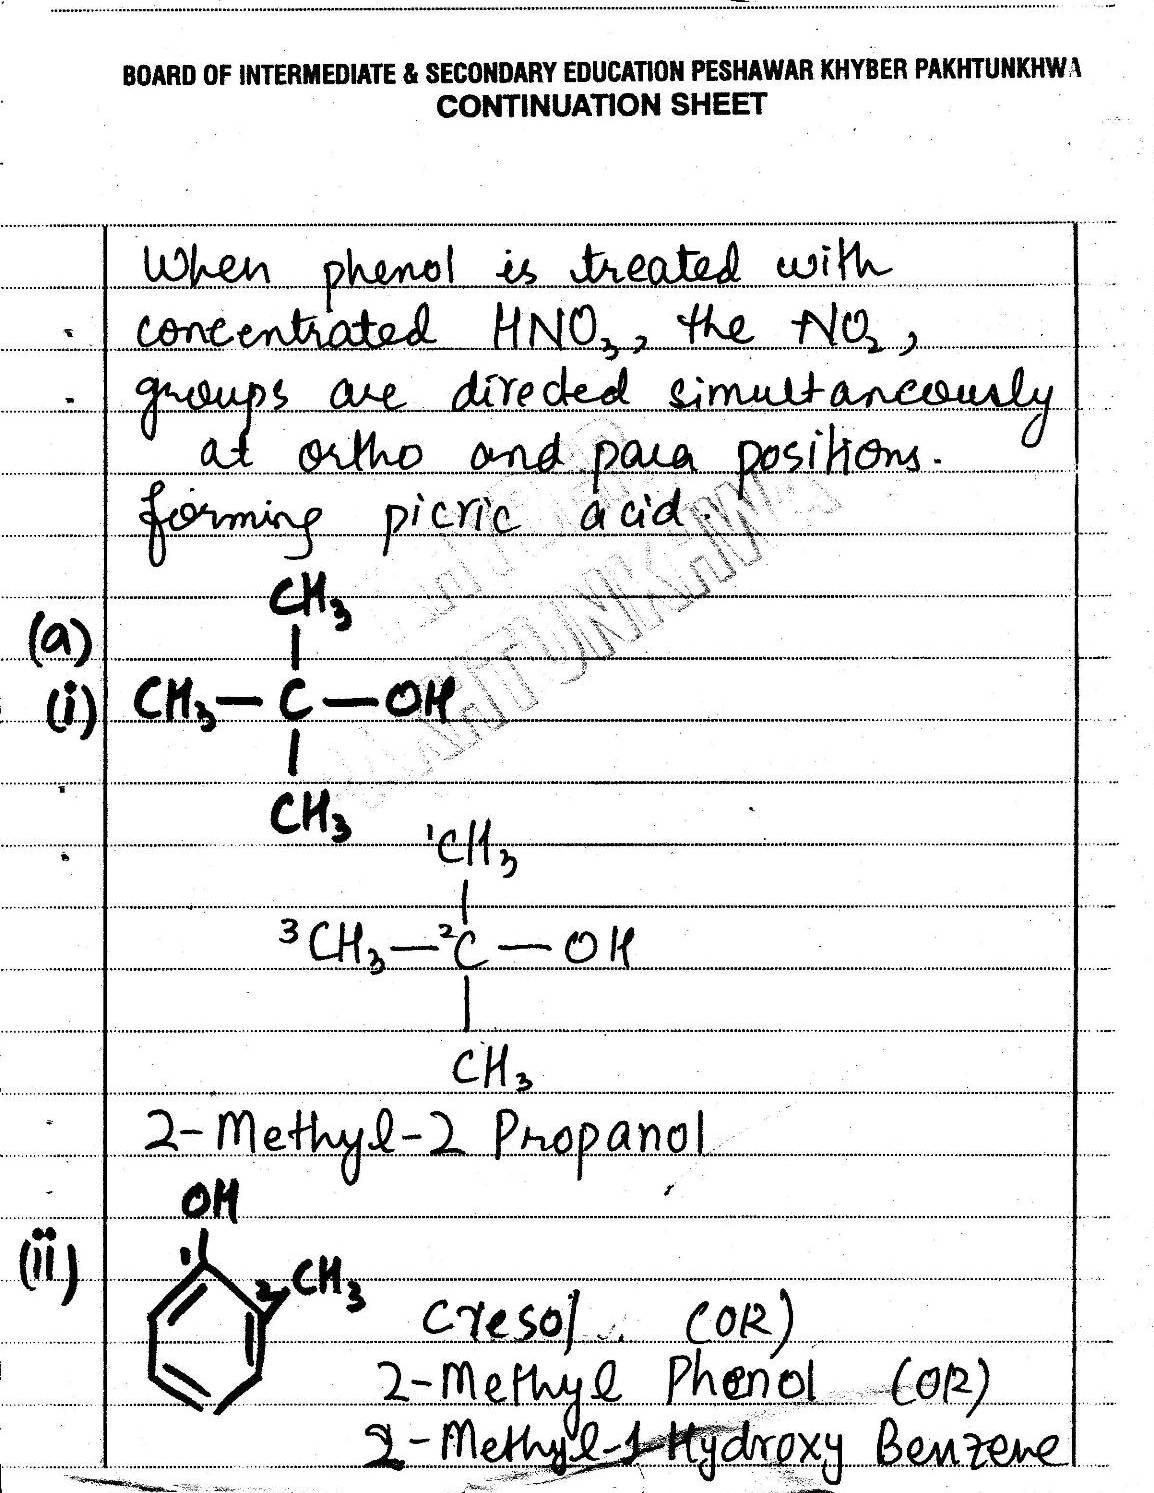 BOARD OF INTERMEDIATE & SECONDARY EDUCATION PESHAWAR KHYBER PAKHTUNKHWA
CONTINUATION SHEET
When phenol is treated with
concentrated HNO₃, the NO₂,
groups are directed simultaneously
at ortho and para positions.
forming picric acid.
(a)
CH₃
(i) CH₃ — C — OH
CH₃
¹CH₃
³CH₃ — ²C — OH
CH₃
2-Methyl-2 Propanol
OH
(ii) 1
2 CH₃
Cresol (OR)
2-Methyl Phenol (OR)
2-Methyl-1 Hydroxy Benzene